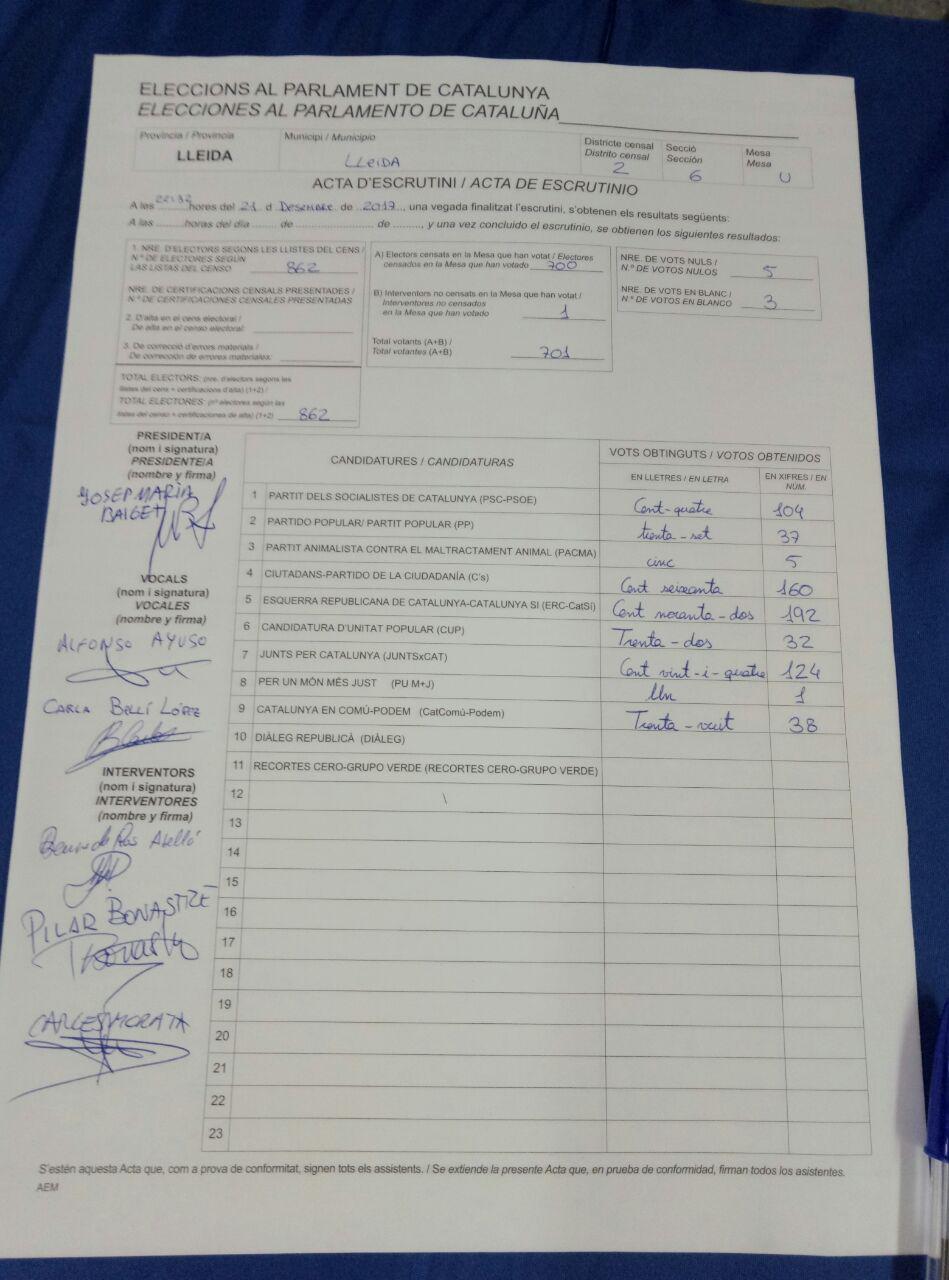 ELECCIONS AL PARLAMENT DE CATALUNYA
ELECCIONES AL PARLAMENTO DE CATALUÑA
Provincia / Provincia
LLEIDA
Municipi / Municipio
LLEIDA
Districte censal
Distrito censal
2
Secció
Sección
6
Mesa
Mesa
U
ACTA D'ESCRUTINI / ACTA DE ESCRUTINIO
A les 22:32 hores del 21 d Desembre de 2017, una vegada finalitzat l'escrutini, s'obtenen els resultats següents:
A las ........ horas del día ...... de ........................ de ........, y una vez concluido el escrutinio, se obtienen los siguientes resultados:
1. NRE. D'ELECTORS SEGONS LES LLISTES DEL CENS /
N.º DE ELECTORES SEGÚN
LAS LISTAS DEL CENSO 862
NRE. DE CERTIFICACIONS CENSALS PRESENTADES /
N.º DE CERTIFICACIONES CENSALES PRESENTADAS
2. D'alta en el cens electoral /
De alta en el censo electoral:
3. De correcció d'errors materials /
De corrección de errores materiales:
TOTAL ELECTORS: (nre. d'electors segons les
llistes del cens + certificacions d'alta) (1+2) /
TOTAL ELECTORES: (nº electores según las
listas del censo + certificaciones de alta) (1+2) 862
A) Electors censats en la Mesa que han votat / Electores
censados en la Mesa que han votado 700
B) Interventors no censats en la Mesa que han votat /
Interventores no censados
en la Mesa que han votado 1
Total votants (A+B) /
Total votantes (A+B) 701
NRE. DE VOTS NULS /
N.º DE VOTOS NULOS 5
NRE. DE VOTS EN BLANC /
N.º DE VOTOS EN BLANCO 3
PRESIDENT/A
(nom i signatura)
PRESIDENTE/A
(nombre y firma)
JOSEP MARIA
BAIGET
VOCALS
(nom i signatura)
VOCALES
(nombre y firma)
ALFONSO AYUSO
CARLA BELLÍ LÓPEZ
INTERVENTORS
(nom i signatura)
INTERVENTORES
(nombre y firma)
PILAR BONASTRE
CARLES MORATA
CANDIDATURES / CANDIDATURAS
VOTS OBTINGUTS / VOTOS OBTENIDOS
EN LLETRES / EN LETRA
EN XIFRES / EN
NÚM.
1 PARTIT DELS SOCIALISTES DE CATALUNYA (PSC-PSOE) Cent-quatre 104
2 PARTIDO POPULAR/ PARTIT POPULAR (PP) trenta-set 37
3 PARTIT ANIMALISTA CONTRA EL MALTRACTAMENT ANIMAL (PACMA) cinc 5
4 CIUTADANS-PARTIDO DE LA CIUDADANÍA (C's) Cent seixanta 160
5 ESQUERRA REPUBLICANA DE CATALUNYA-CATALUNYA SÍ (ERC-CatSí) Cent noranta-dos 192
6 CANDIDATURA D'UNITAT POPULAR (CUP) Trenta-dos 32
7 JUNTS PER CATALUNYA (JUNTSxCAT) Cent vint-i-quatre 124
8 PER UN MÓN MÉS JUST (PU M+J) Un 1
9 CATALUNYA EN COMÚ-PODEM (CatComú-Podem) Trenta-vuit 38
10 DIÀLEG REPUBLICÀ (DIÀLEG)
11 RECORTES CERO-GRUPO VERDE (RECORTES CERO-GRUPO VERDE)
12
13
14
15
16
17
18
19
20
21
22
23
S'estén aquesta Acta que, com a prova de conformitat, signen tots els assistents. / Se extiende la presente Acta que, en prueba de conformidad, firman todos los asistentes.
AEM